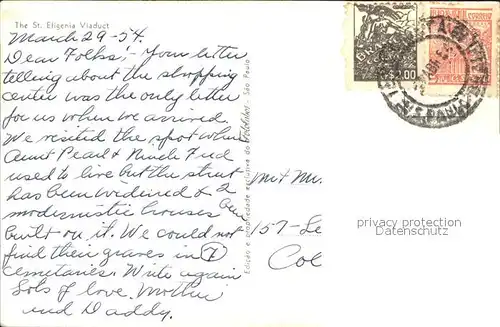 The St. Efigenia Viaduct
March 29 - 54
Dear Folks, - Your letter
telling about the shopping
center was the only letter
for us when we arrived.
We visited the spot where
Aunt Pearl & Uncle Fred
used to live but the street
has been widened & 2
modernistic houses been
built on it. We could not
find their graves in 7
cemetaries. Write again
Lots of love. Mother
and Daddy.
Edição e propriedade exclusiva da São Paulo
Mr & Mr.
157 - Le
Col
2,00
S. PAULO
privacy protection
Datenschutz